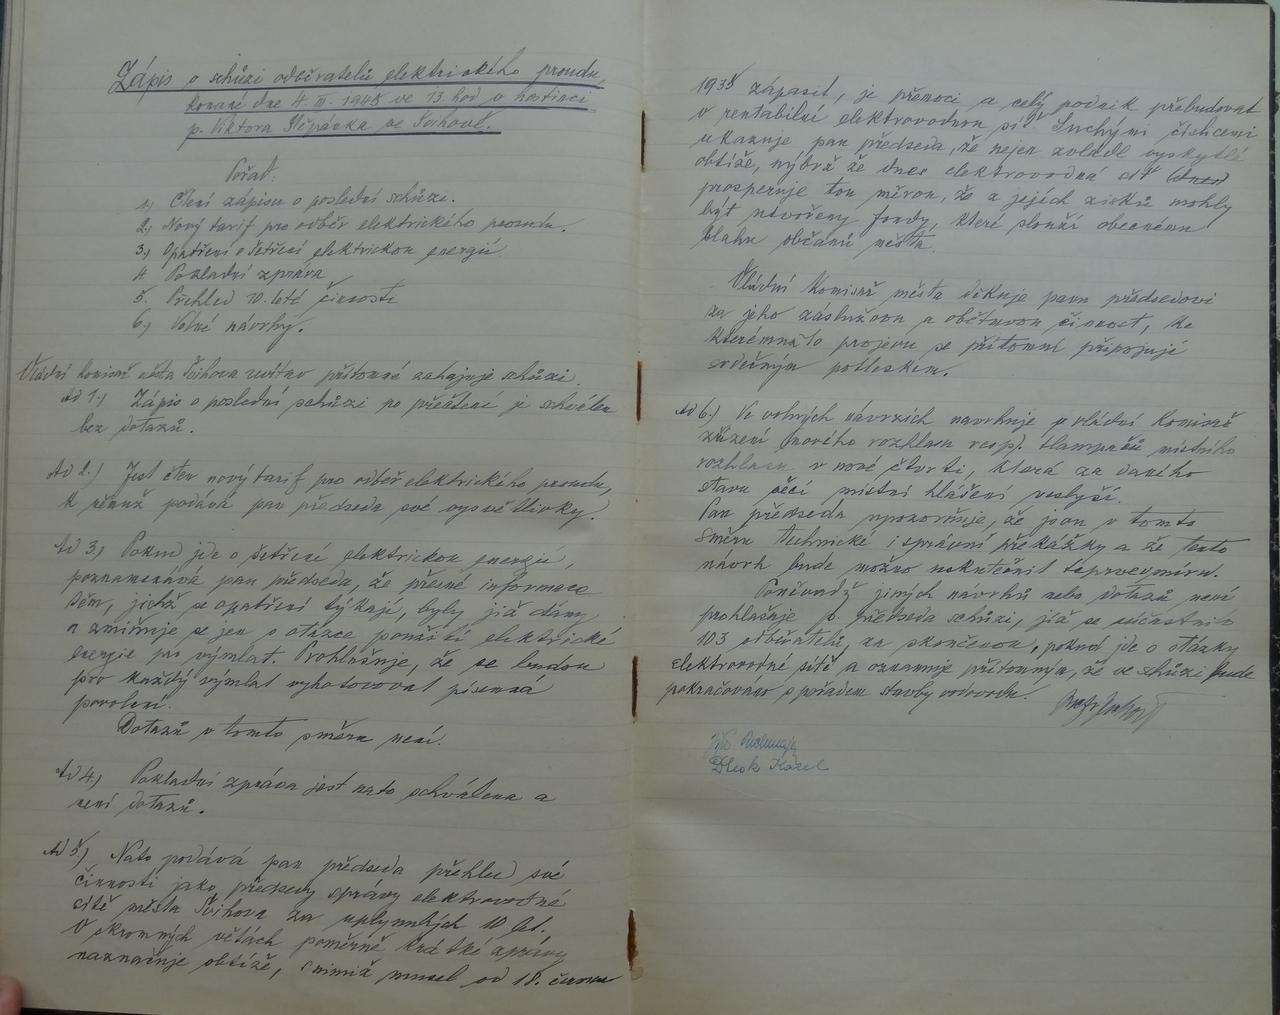 Zápis o schůzi odběratelů elektrického proudu,
konané dne 4. III. 1945 ve 13. hod v hostinci
p. Viktora Štěpánka ve Švihově.
Pořad:
1.) Čtení zápisu o poslední schůzi.
2.) Nový tarif pro odběr elektrického proudu.
3.) Opatření o šetření elektrickou energií
4. Pokladní zpráva
5. Přehled 10. leté činnosti
6.) Volné návrhy.
Vládní komisař města Švihova uvítav přítomné zahajuje schůzi.
Ad 1.) Zápis o poslední schůzi po přečtení je schválen
bez dotazů.
Ad 2.) Jest čten nový tarif pro odběr elektrického proudu,
k němuž podává pan předseda své vysvětlivky.
Ad 3.) Pokud jde o šetření elektrickou energií,
poznamenává pan předseda, že přesné informace
těm, jichž se opatření týkají, byly již dány
a zmiňuje se jen o otázce použití elektrické
energie pro výmlat. Prohlašuje, že se budou
pro každý výmlat vyhotovovat písemná
povolení.
Dotazů v tomto směru není.
Ad 4.) Pokladní zpráva jest nato schválena a
není dotazů.
Ad 5.) Nato podává pan předseda přehled své
činnosti jako předsedy správy elektrovodné
sítě města Švihova za uplynulých 10 let.
V skromných větách poměrně krátké zprávy
naznačuje obtíže, s nimiž musel od 18. června
1935 zápasit, je přemoci a celý podnik přebudovat
v rentabilní elektrovodnou síť. Suchými číslicemi
ukazuje pan předseda, že nejen zvládl vyskytlé
obtíže, nýbrž že dnes elektrovodná síť (dnes)
prosperuje tou měrou, že z jejích zisků mohly
být utvořeny fondy, které slouží obecnému
blahu občanů města.
Vládní komisař města děkuje panu předsedovi
za jeho záslužnou a obětavou činnost, ke
kterémužto projevu se přítomní připojují
srdečným potleskem.
Ad 6.) Ve volných návrzích navrhuje p. vládní komisař
zřízení (nového rozhlasu resp). tlampačů místního
rozhlasu v nové čtvrti, která za daného
stavu věcí místní hlášení neslyší.
Pan předseda upozorňuje, že jsou v tomto
směru technické i správní překážky a že tento
návrh bude možno uskutečnit teprve v míru.
Poněvadž jiných návrhů nebo dotazů není
prohlašuje p. předseda schůzi, jíž se súčastnilo
103 odběratelů, za skončenou, pokud jde o otázky
elektrovodné sítě a oznamuje přítomným, že ve schůzi bude
pokračováno s pořadem stavby vodovodu.